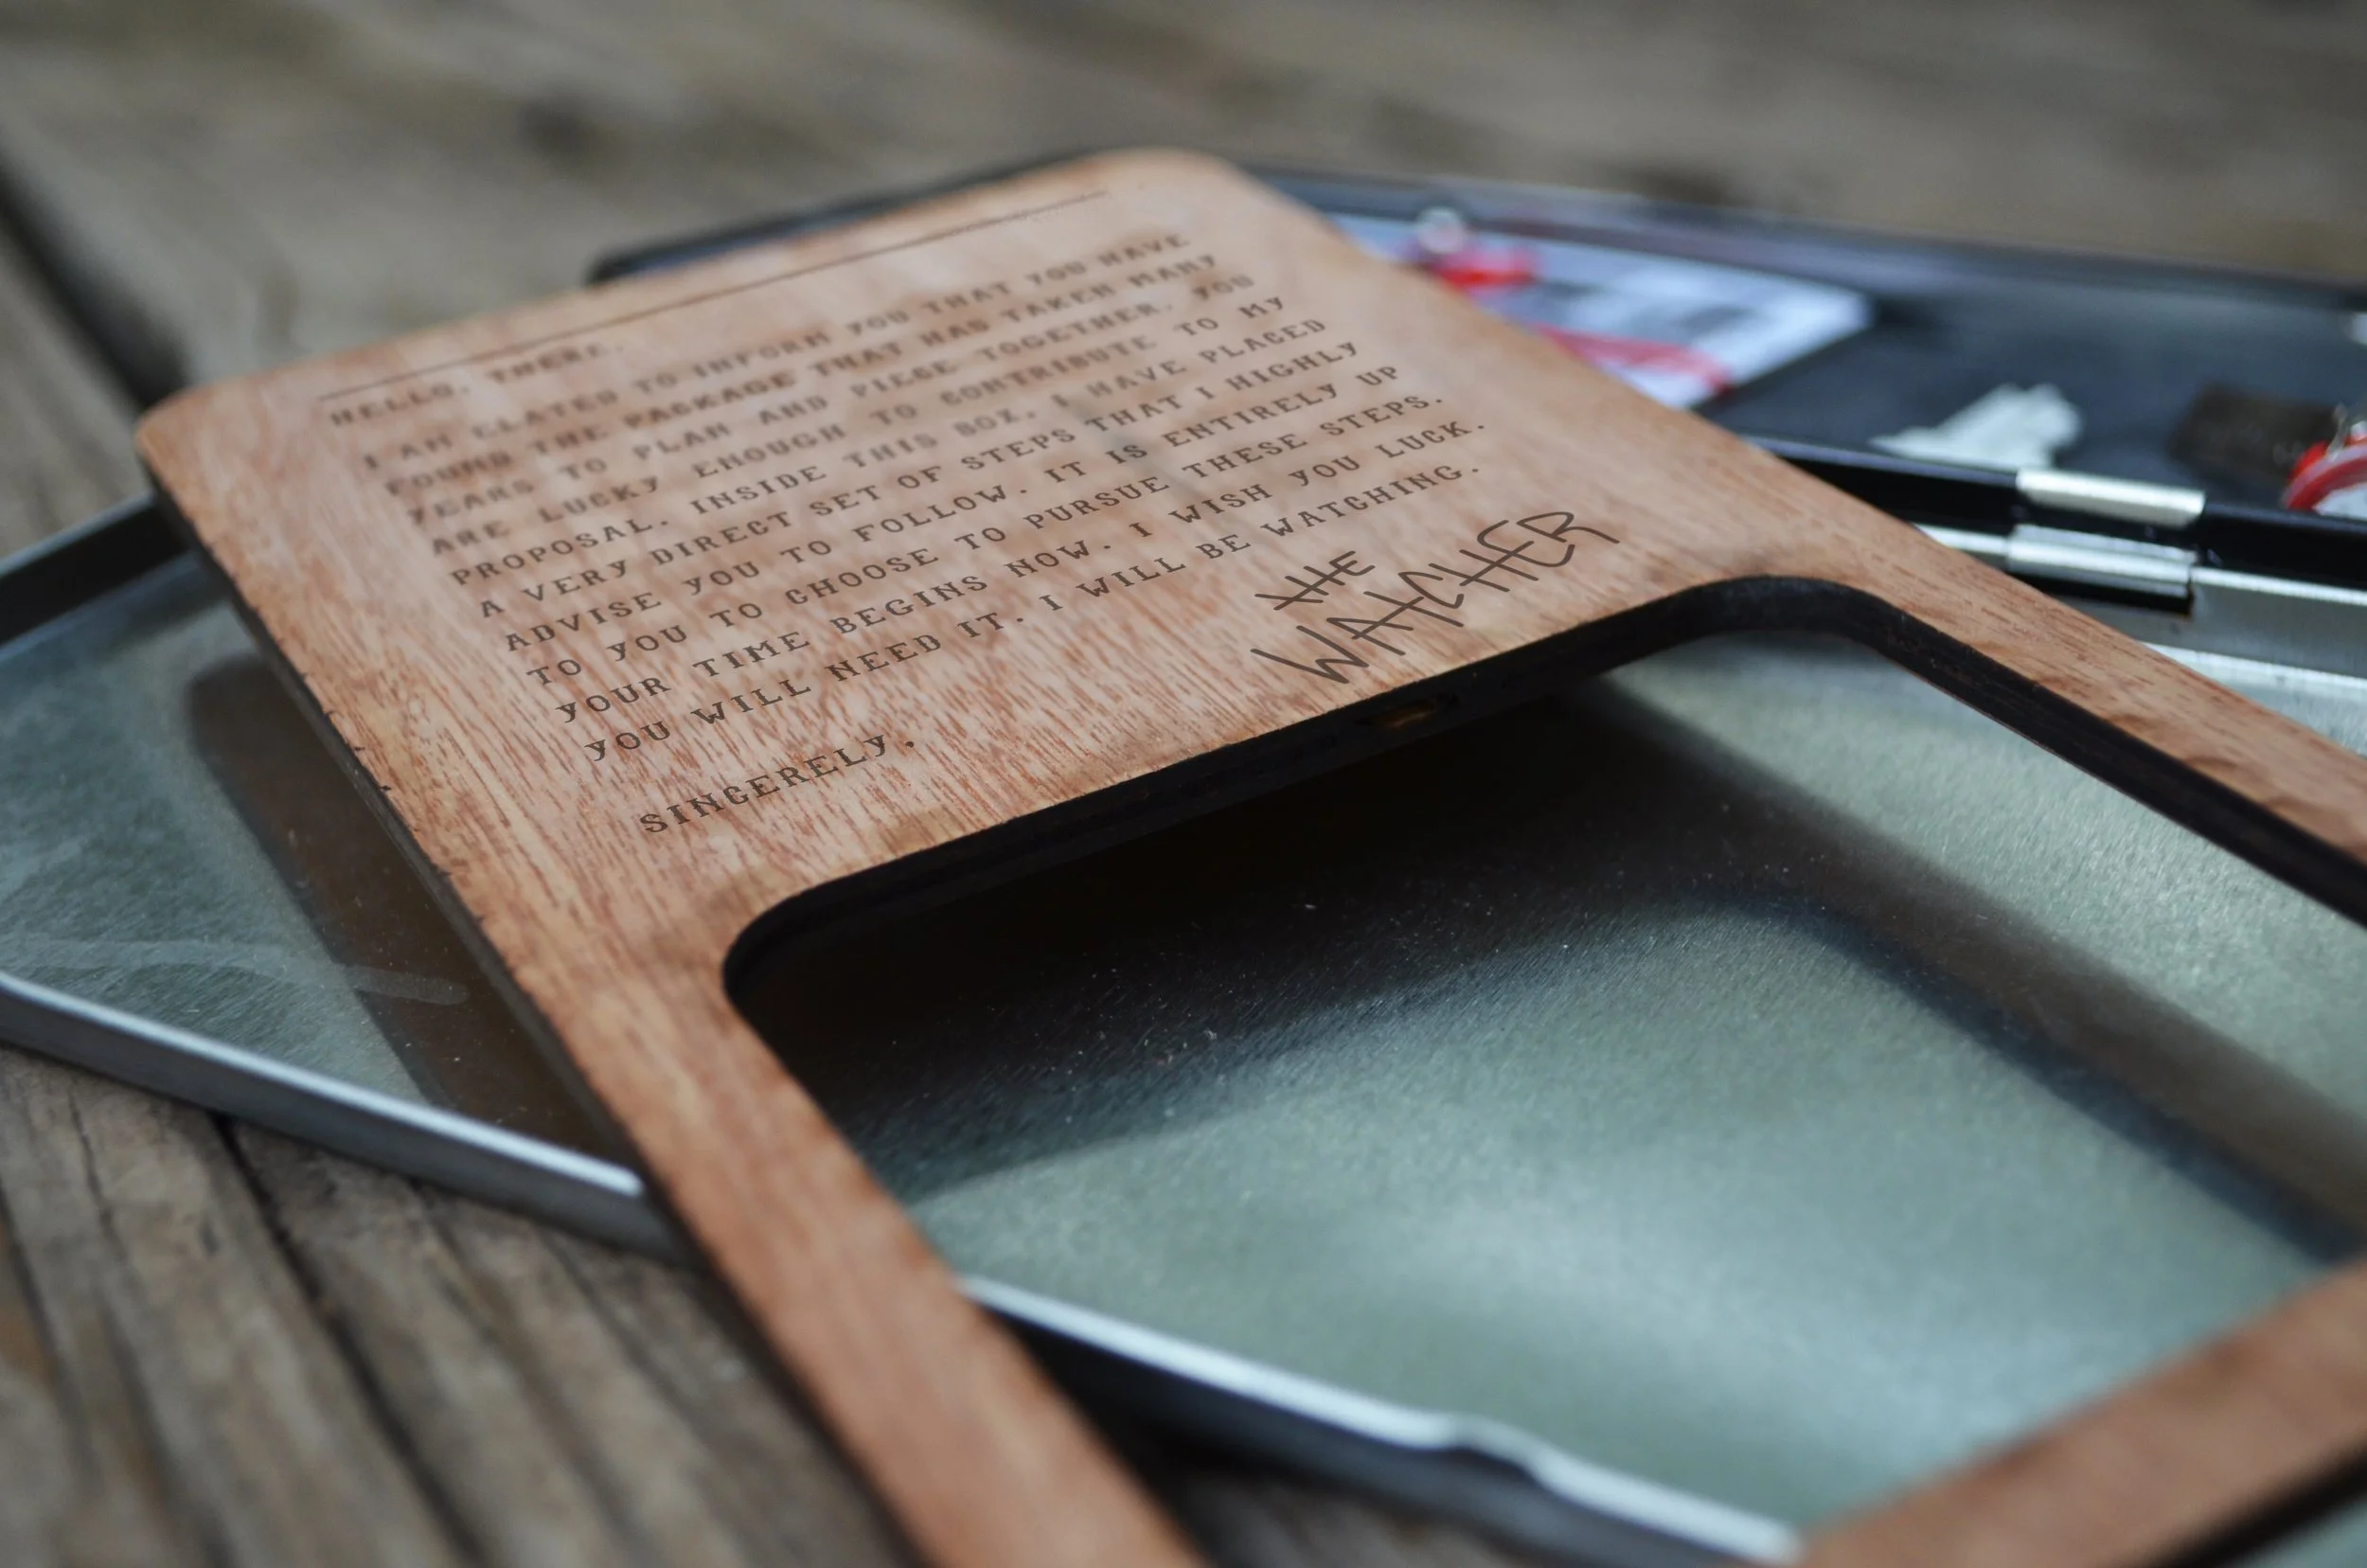 HELLO, THERE.
I AM ELATED TO INFORM YOU THAT YOU HAVE
FOUND THE PACKAGE THAT HAS TAKEN MANY
YEARS TO PLAN AND PIECE TOGETHER. YOU
ARE LUCKY ENOUGH TO CONTRIBUTE TO MY
PROPOSAL. INSIDE THIS BOX, I HAVE PLACED
A VERY DIRECT SET OF STEPS THAT I HIGHLY
ADVISE YOU TO FOLLOW. IT IS ENTIRELY UP
TO YOU TO CHOOSE TO PURSUE THESE STEPS.
YOUR TIME BEGINS NOW. I WISH YOU LUCK.
YOU WILL NEED IT. I WILL BE WATCHING.
SINCERELY,
THE
WATCHER